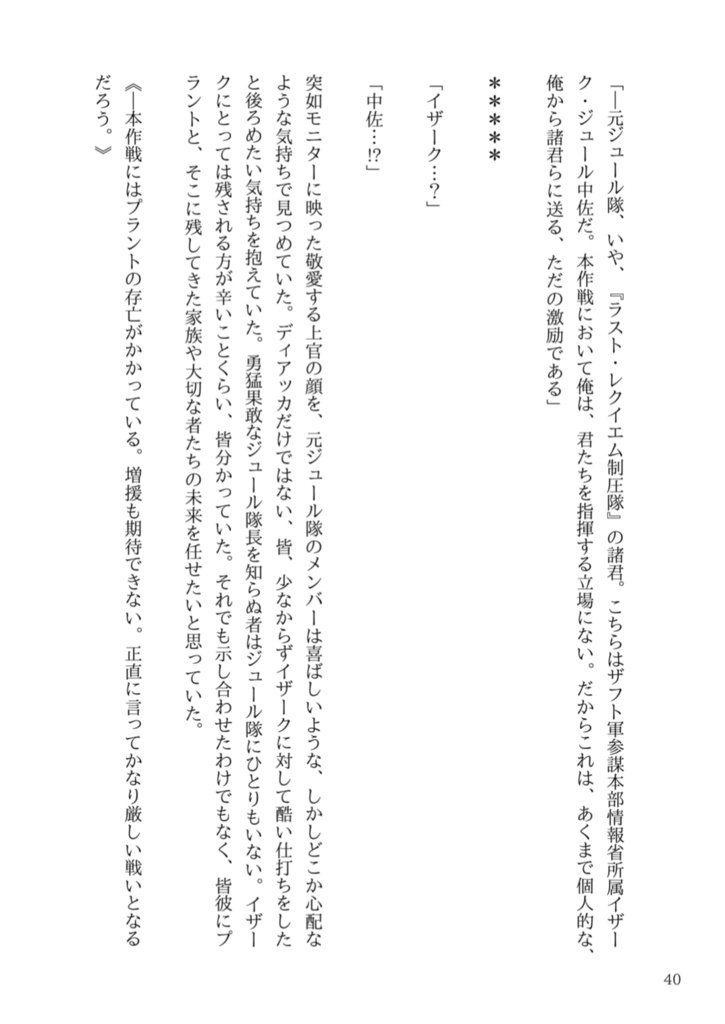 「―元ジュール隊、いや、『ラスト・レクイエム制圧隊』の諸君。こちらはザフト軍参謀本部情報省所属イザー
ク・ジュール中佐だ。本作戦において俺は、君たちを指揮する立場にない。だからこれは、あくまで個人的な、
俺から諸君らに送る、ただの激励である」
＊＊＊＊＊
「イザーク…？」
「中佐…!?」
突如モニターに映った敬愛する上官の顔を、元ジュール隊のメンバーは喜ばしいような、しかしどこか心配な
ような気持ちで見つめていた。ディアッカだけではない、皆、少なからずイザークに対して酷い仕打ちをした
と後ろめたい気持ちを抱えていた。勇猛果敢なジュール隊長を知らぬ者はジュール隊にひとりもいない。イザー
クにとっては残される方が辛いことくらい、皆分かっていた。それでも示し合わせたわけでもなく、皆彼にプ
ラントと、そこに残してきた家族や大切な者たちの未来を任せたいと思っていた。
《―本作戦にはプラントの存亡がかかっている。増援も期待できない。正直に言ってかなり厳しい戦いとなる
だろう。》
40